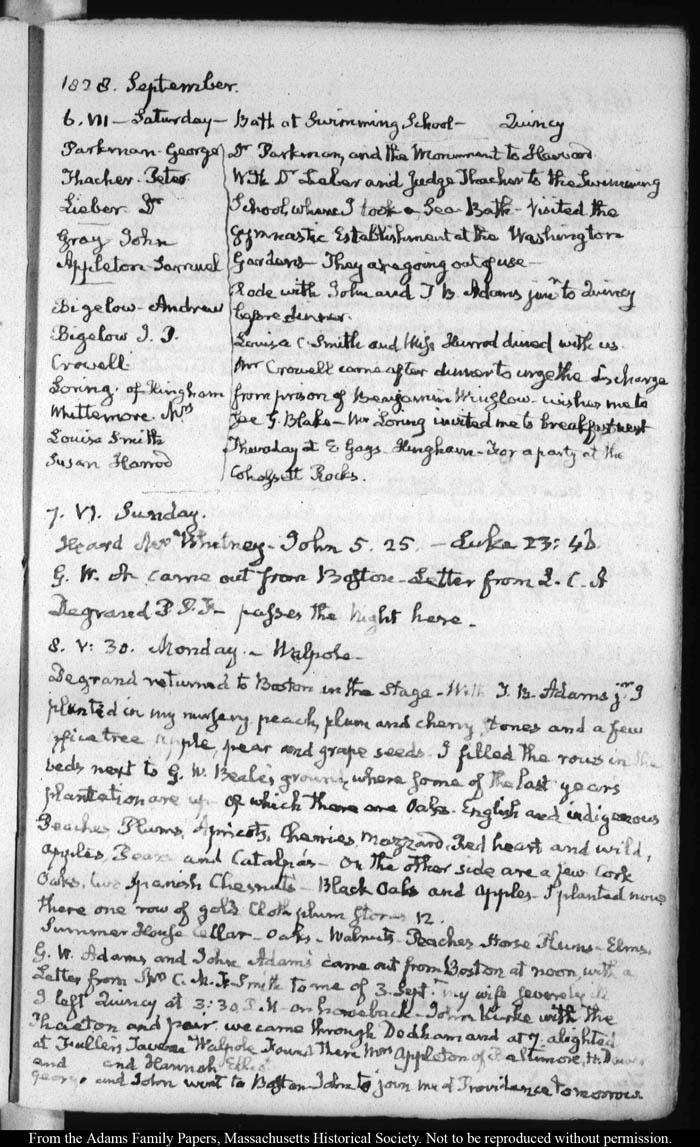 1828. September.
6. VII — Saturday — Bath at Swimming School — Quincy
Parkman - George
Thacher. Peter
Lieber. Dr
Gray John
Appleton. Samuel
Bigelow - Andrew
Bigelow
Crowell
Loring. of Hingham
Whittemore. Mrs
Louisa Smith
Susan Harrod
Dr Parkman, and the Monument to Harvard.
With Dr Lieber and Judge Thacher to the Swimming
School, where I took a Sea Bath - Visited the
Gymnastic Establishment at the Washington
Gardens - They are going out of use -
Rode with John and T B. Adams junr to Quincy
before dinner.
Louisa C. Smith and Miss Harrod dined with us.
Mr Crowell came after dinner to urge the discharge
from prison of Benjamin Winslow - wishes me to
see G. Blake - Mr Loring invited me to breakfast next
Thursday at E Gays Hingham - For a party at the
Cohassett Rocks.
7. VI. Sunday.
Heard Mr Whitney - John 5. 25. — Luke 23:
G. W. A came out from Boston - Letter from L. C. A
Degrand P. P. F - passes the night here -
8. V: 30. Monday. - Walpole -
Degrand returned to Boston in the Stage - With T. B. Adams jr. I
planted in my nursery peach, plum and cherry stones and a few
tree apple, pear and grape seeds. I filled the rows in the
beds next to G. W. Beale's ground, where some of the last years
plantation are up of which there are Oaks. English and indigenous
Peaches Plums, Apricots, Cherries Mazzard, Red heart and wild,
Apples, Pears and Catalpas - On the other side are a few Cork
Oaks, two Spanish Chesnuts - Black Oaks and Apples - I planted now
there one row of gold Cloth plum stones 12.
Summer House Cellar - Oaks - Walnuts - Peaches Horse Plums - Elms.
G. W. Adams, and John Adams came out from Boston at noon, with a
Letter from Mrs C. Smith to me of 3. Sept. my wife severely ill
I left Quincy at 3:30. P. M - on horseback - John Kirke with the
Phaeton and pair. we came through Dedham and at 7. alighted
at Fuller's Tavern Walpole Found there Mrs Appleton of Baltimore,
and and Hannah Ellis
George and John went to Boston John to join me at Providence tomorrow
From the Adams Family Papers, Massachusetts Historical Society. Not to be reproduced without permission.